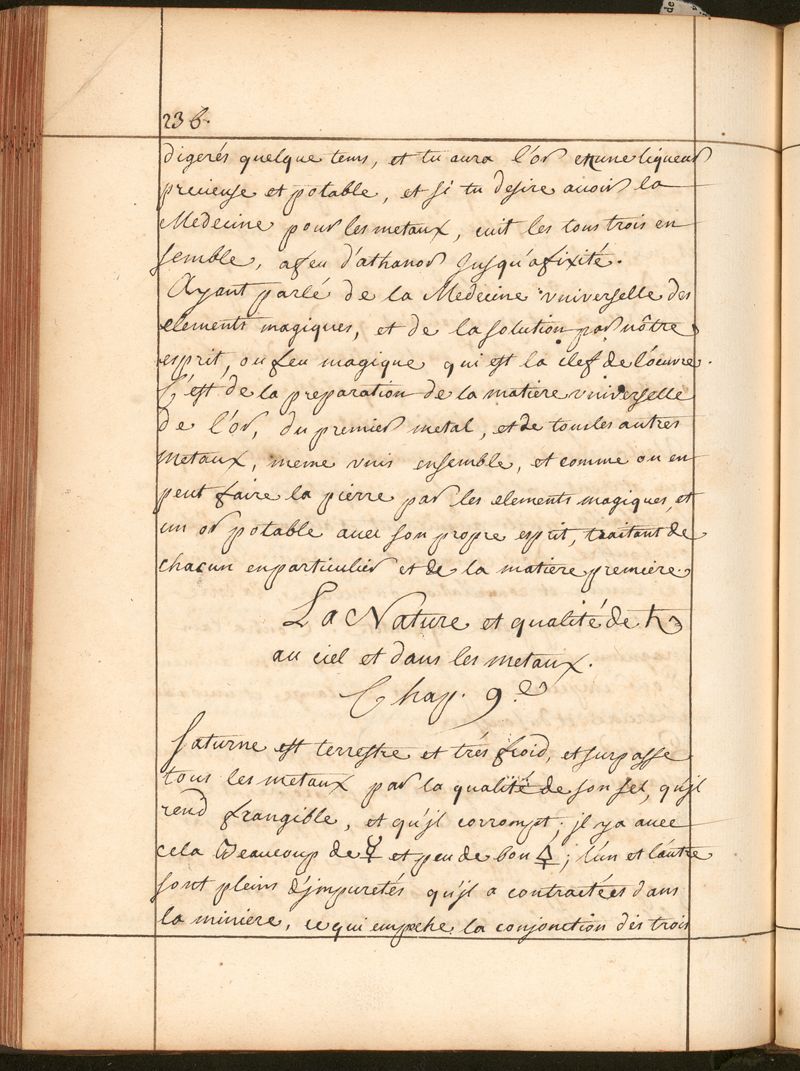 236.
digerés quelque tems, et tu aura l'or en une liqueur
precieuse et potable, et si tu desire avoir la
Medecine pour les metaux, cuit les tous trois en
semble, a feu d'athanor Jusqu'a fixité.
Ayant parlé de la Medecine vniverselle des
elements magiques, et de la solution par nôtre
esprit, ou feu magique qui est la clef de l'oeuvre.
C'est de la preparation de la matiere vniverselle
de l'or, du premier metal, et de tous les autres
metaux, meme vnis ensemble, et comme on en
peut faire la pierre par les elements magiques, et
un or potable avec son propre esprit, traitant de
chacun en particulier et de la matiere premiere.
La Nature et qualité de ♄
au ciel et dans les metaux.
Chap. 9.e
Saturne est terrestre et trés froid, et surpasse
tous les metaux par la qualité de son sel, qu'jl
rend frangible, et qu'jl corrompt; jl y a avec
cela Beaucoup de ☿ et peu de bon 🜍; l'un et l'autre
sont pleins d'jmpuretés qu'jl a contractées dans
la miniere, ce qui empeche la conjonction des trois